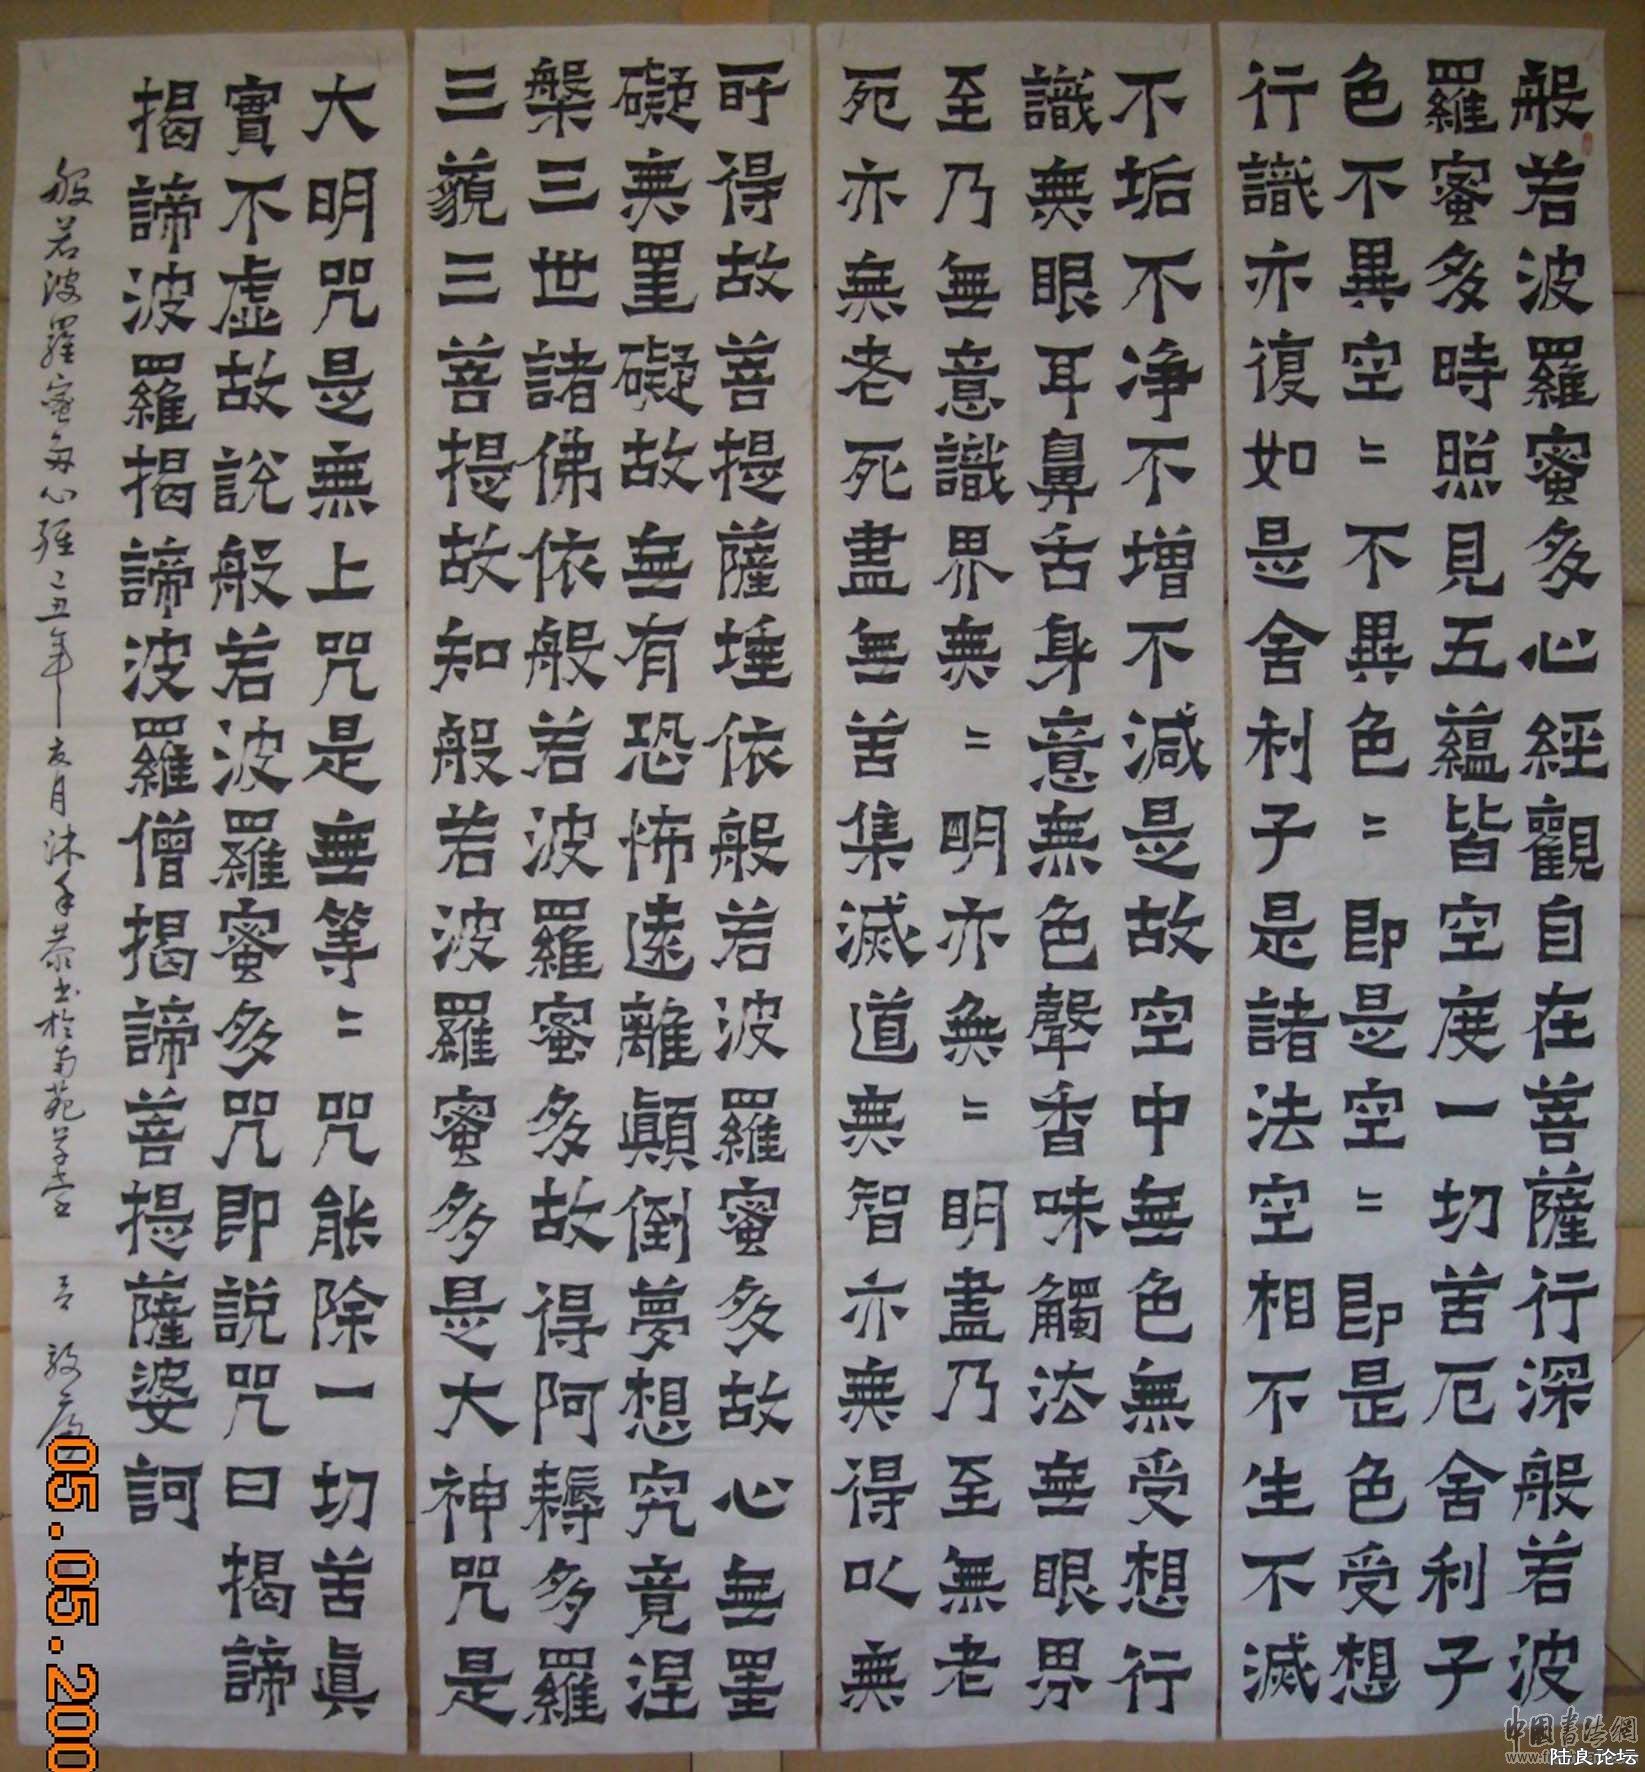 般若波羅蜜多心經觀自在菩薩行深般若波
羅蜜多時照見五蘊皆空度一切苦厄舍利子
色不異空〻不異色〻即是空〻即是色受想
行識亦復如是舍利子是諸法空相不生不滅
不垢不净不增不減是故空中無色無受想行
識無眼耳鼻舌身意無色聲香味觸法無眼界
至乃無意識界無〻明亦無〻明盡乃至無老
死亦無老死盡無苦集滅道無智亦無得以無
所得故菩提薩埵依般若波羅蜜多故心無罣
礙無罣礙故無有恐怖遠離顛倒夢想究竟涅
槃三世諸佛依般若波羅蜜多故得阿耨多羅
三藐三菩提故知般若波羅蜜多是大神咒是
大明咒是無上咒是無等〻咒能除一切苦眞
實不虛故說般若波羅蜜多咒即說咒曰揭諦
揭諦波羅揭諦波羅僧揭諦菩提薩婆訶
般若波羅蜜多心經己丑年夏月沐手恭书於南苑
05.05.200
中國書法網
陆良论坛